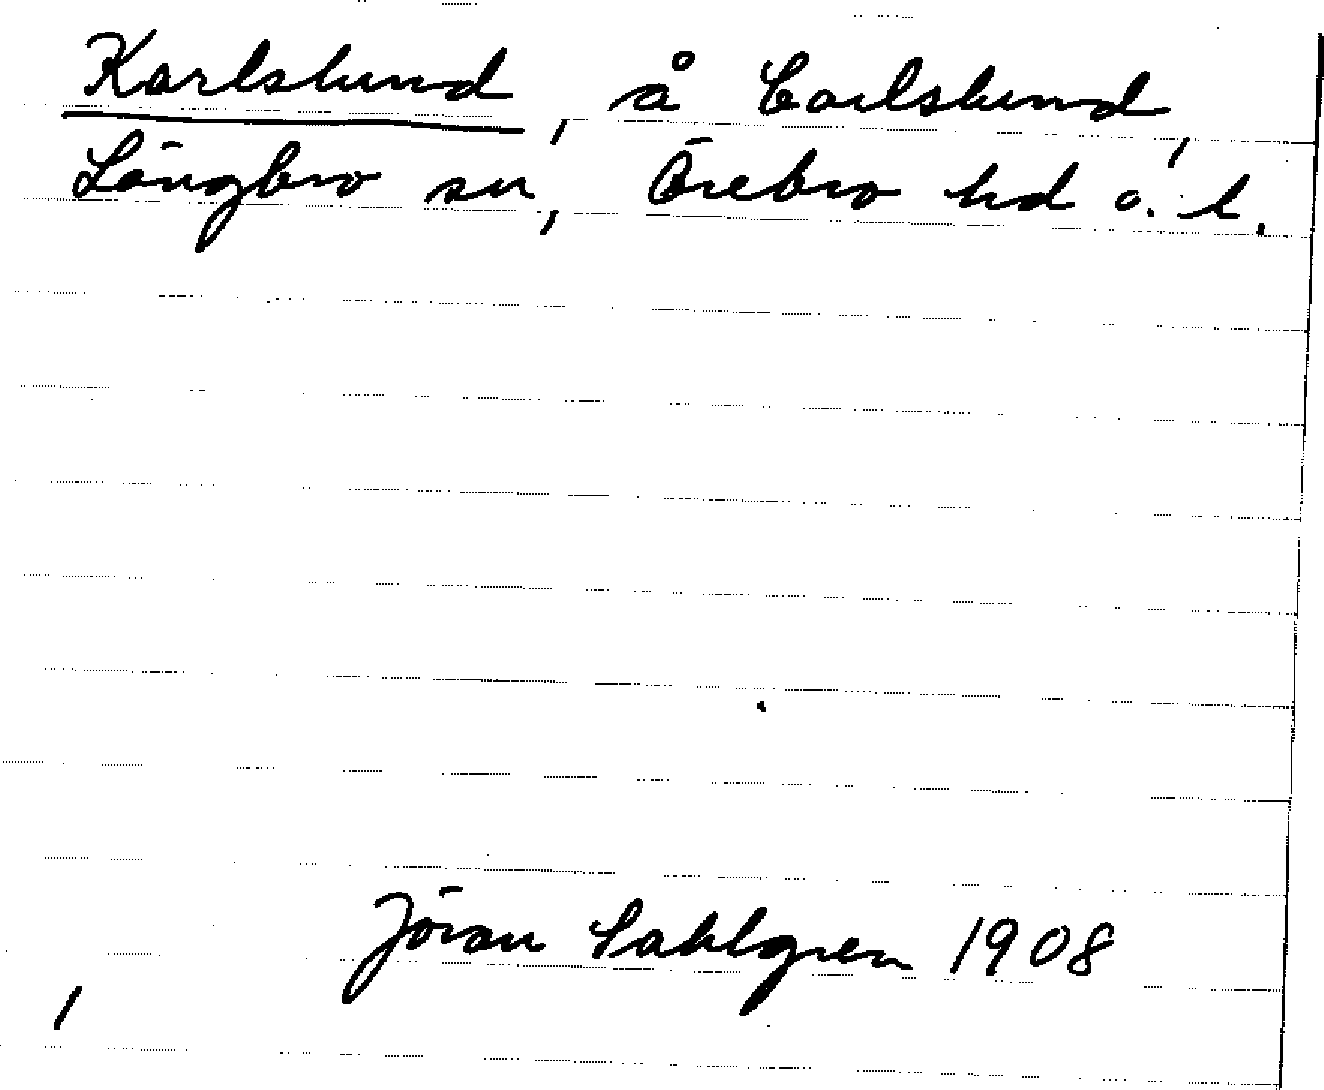 Karlslund, å Carlslund,
Långbro sn, Örebro hd o. l.
Jöran Sahlgren 1908